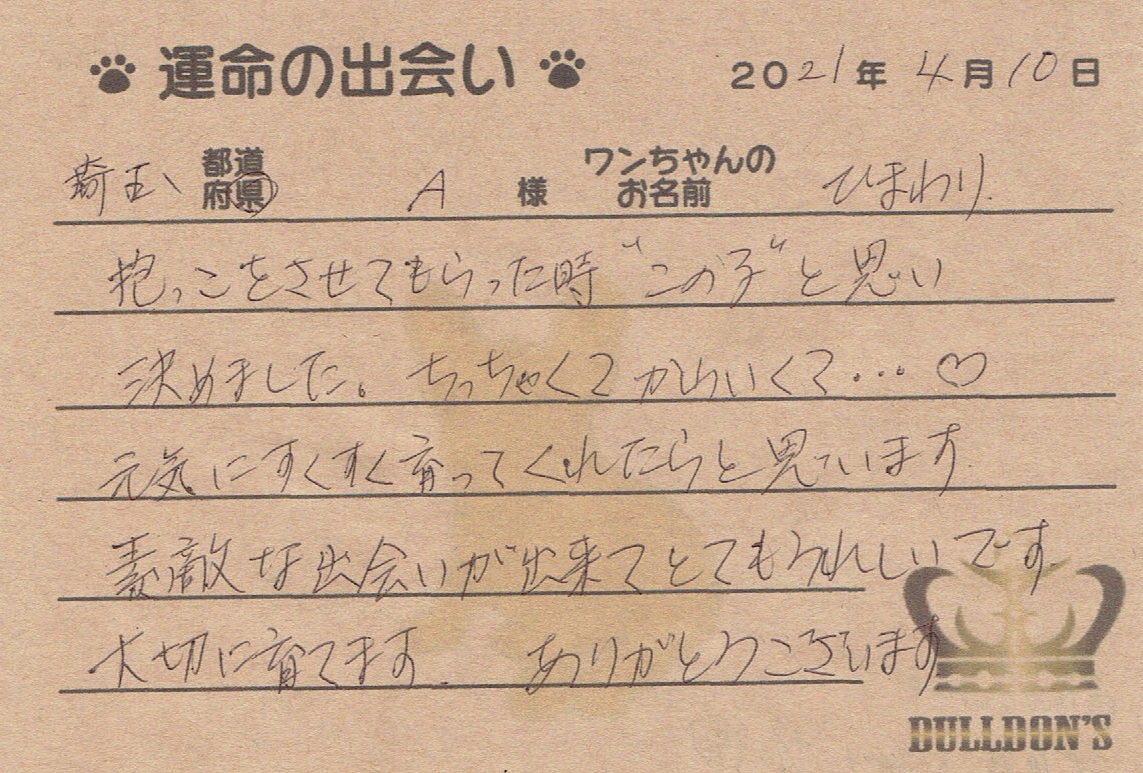 運命の出会い 2021年 4月10日
埼玉 都道府県 A 様 ワンちゃんのお名前 ひまわり
抱っこをさせてもらった時“この子”と思い
決めました。ちっちゃくてかわいくて…♡
元気にすくすく育ってくれたらと思います
素敵な出会いが出来てとてもうれしいです
大切に育てます. ありがとうございます
BULLDON'S